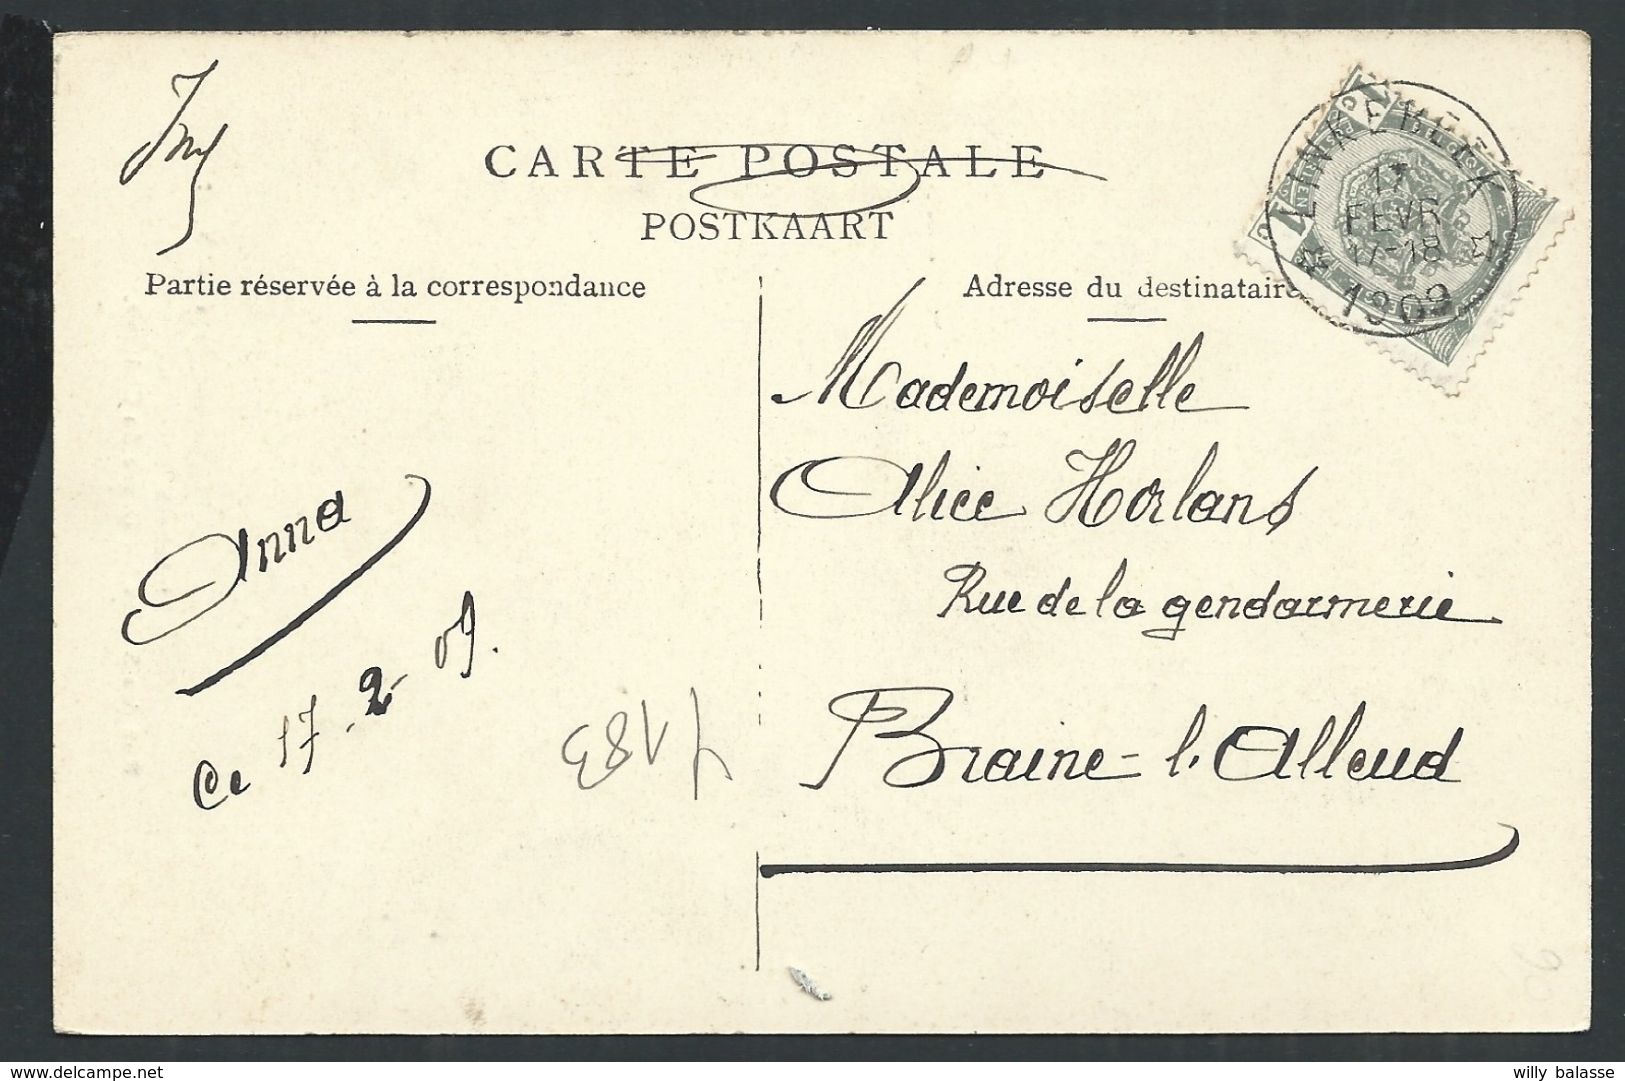 CARTE POSTALE
POSTKAART
Partie réservée à la correspondance
Adresse du destinataire
LINKEBEEK
17
FEVR
17-18
1909
Mademoiselle
Alice Horlans
Rue de la gendarmerie
Braine-l'Alleud
Anna
Ce 17-2-09.
delcampe.net
willy balasse